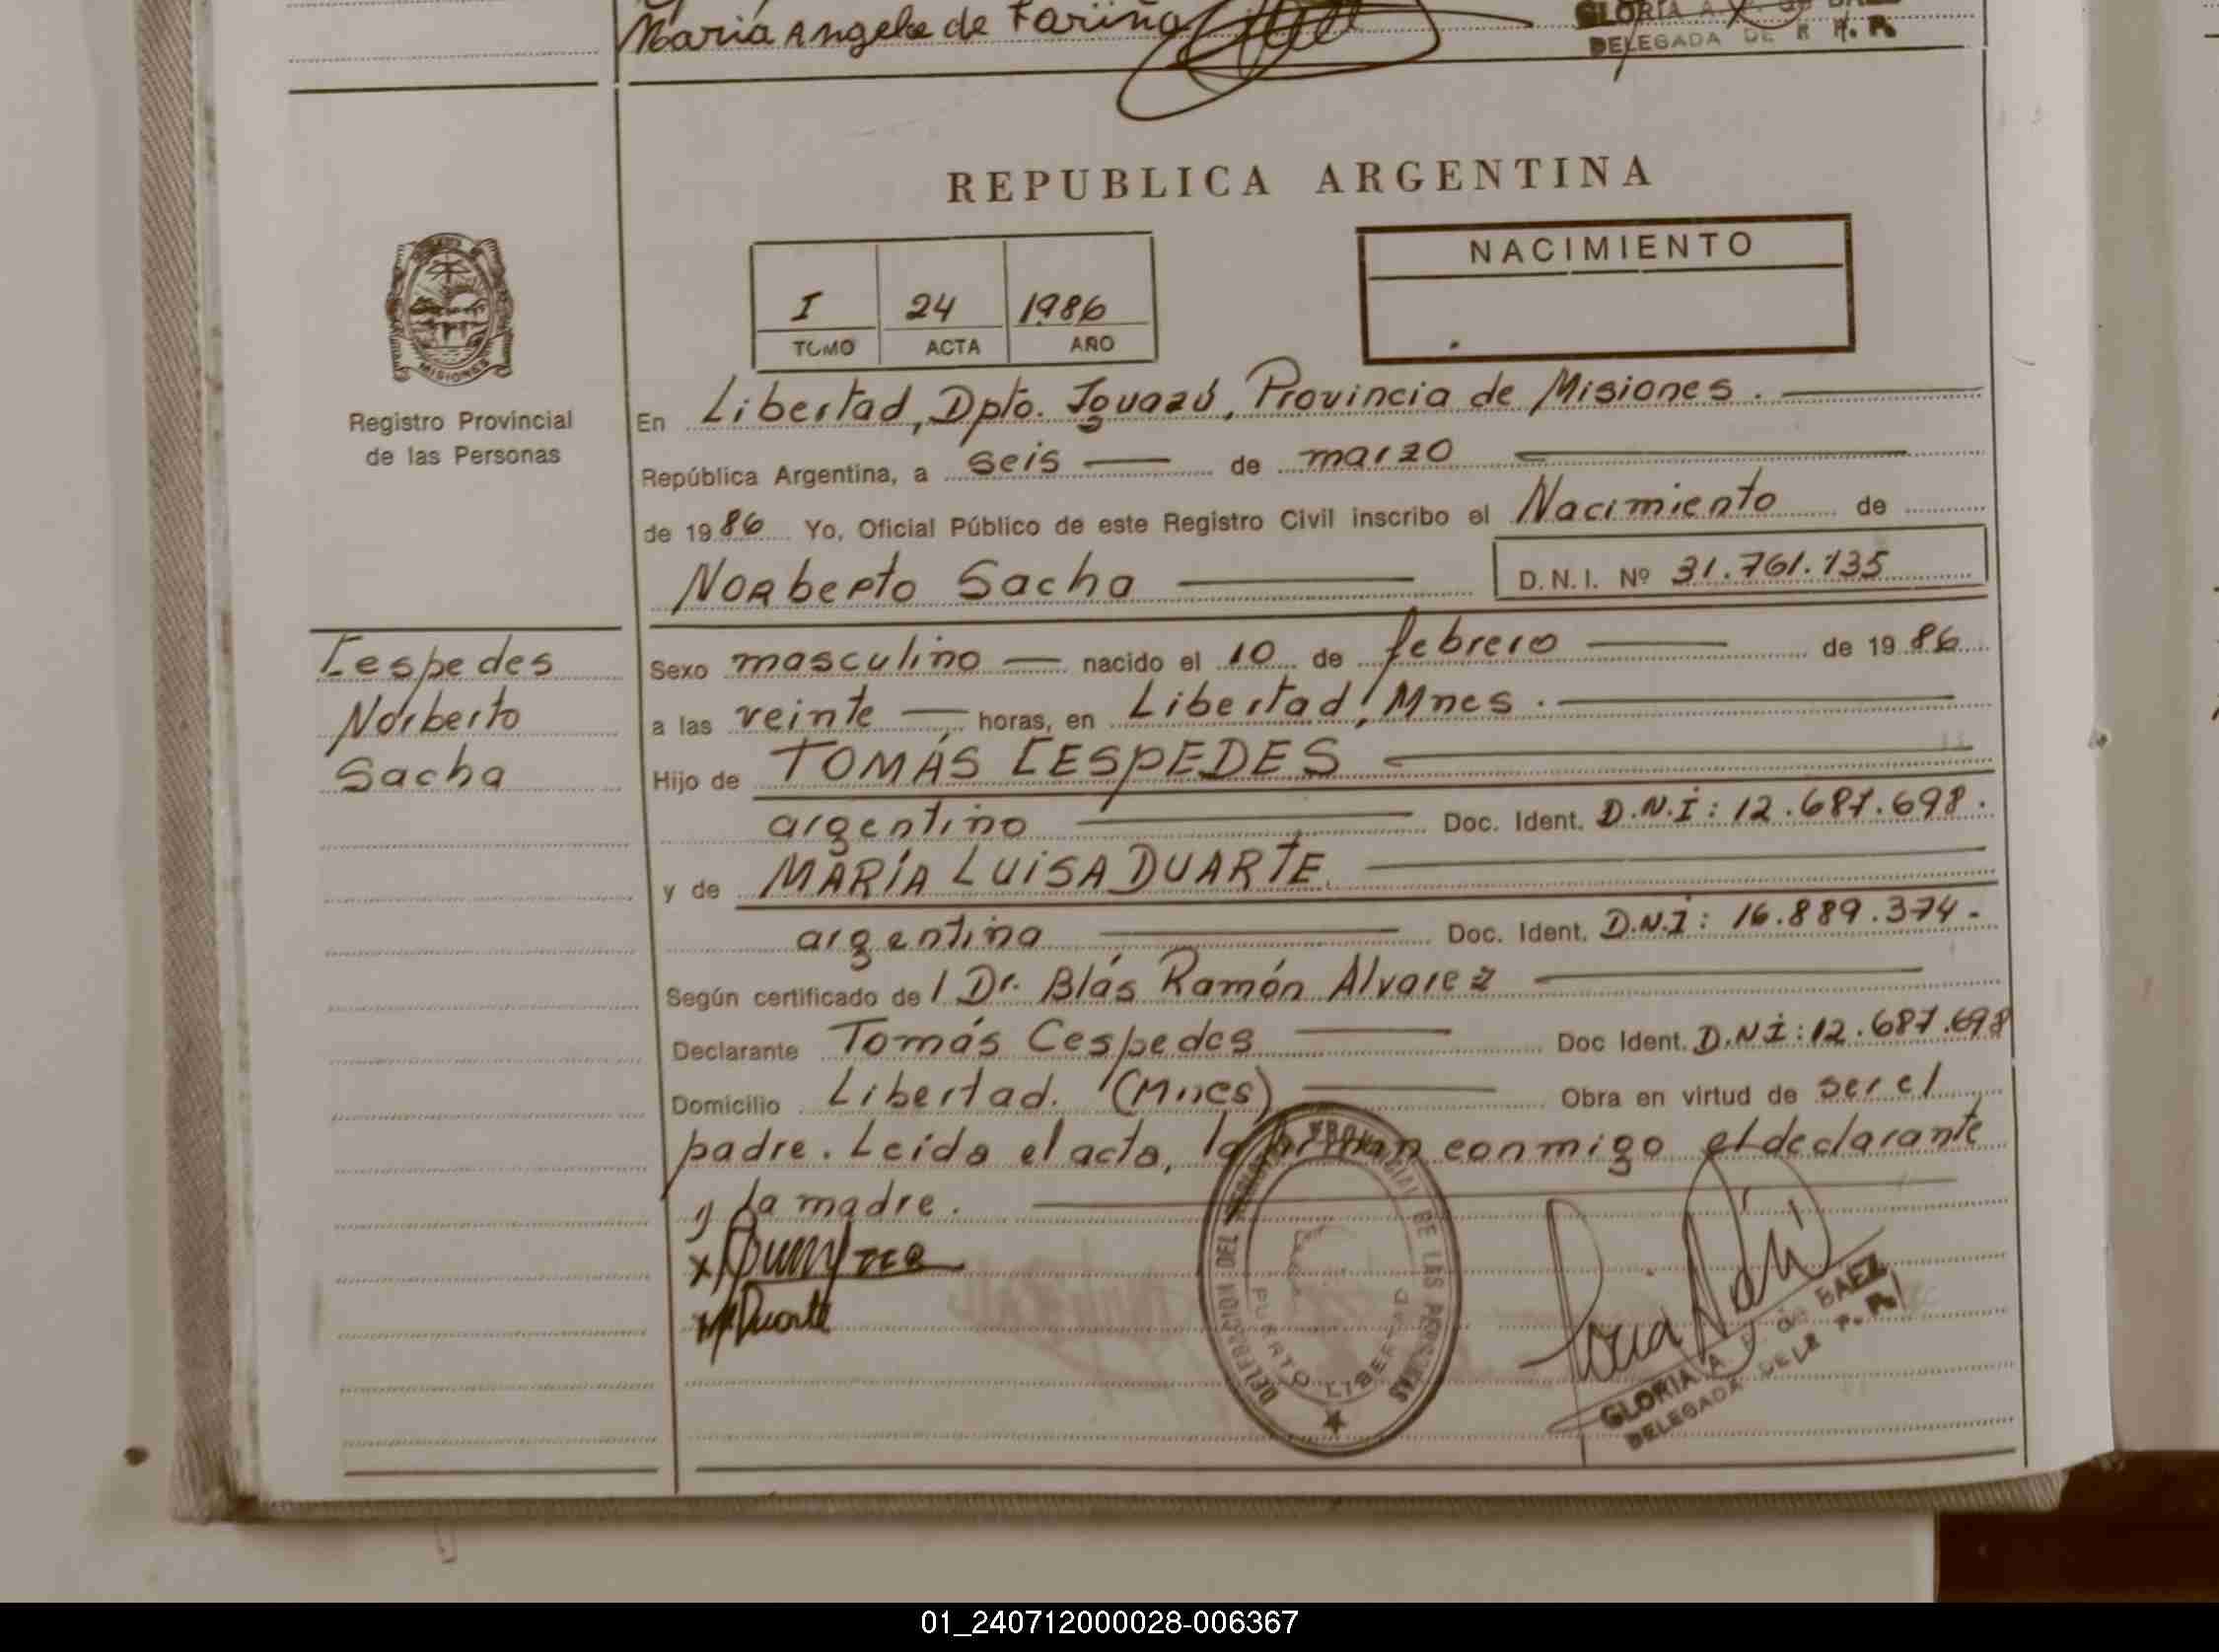 María Angela de Fariña
GLORIA A.
DELEGADA DE R P. P.
REPUBLICA ARGENTINA
NACIMIENTO
I 24 1986
TOMO ACTA AÑO
MISIONES
Registro Provincial
de las Personas
En Libertad, Dpto. Iguazú, Provincia de Misiones.
República Argentina, a seis de marzo
de 1986 Yo, Oficial Público de este Registro Civil inscribo el Nacimiento de
Norberto Sacha D.N.I. Nº 31.761.135
Cespedes
Norberto
Sacha
Sexo masculino nacido el 10 de febrero de 1986
a las veinte horas, en Libertad, Mnes.
Hijo de TOMÁS CESPEDES
argentino Doc. Ident. D.N.I: 12.687.698.
y de MARÍA LUISA DUARTE.
argentina Doc. Ident. D.N.I: 16.889.374.-
Según certificado del Dr. Blás Ramón Alvarez
Declarante Tomás Cespedes Doc Ident. D.N.I: 12.687.698
Domicilio Libertad. (Mnes) Obra en virtud de ser el
padre. Leída el acta, la firman conmigo el declarante
y la madre.
x
M Duarte
DELEGACION DEL REGISTRO PROVINCIAL DE LAS PERSONAS
PUERTO LIBERTAD
GLORIA A. de BAEZ
DELEGADA DEL R. P. P.
01_240712000028-006367